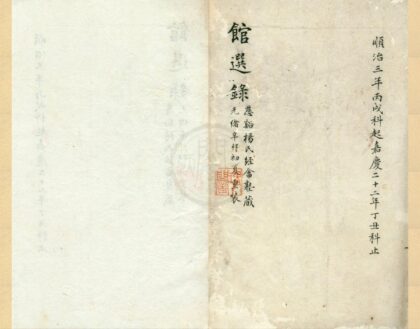 順治三年丙戌科起嘉慶二十二年丁丑科止
館選錄
慈谿楊氏經畬塾藏
光緒初夏重裝